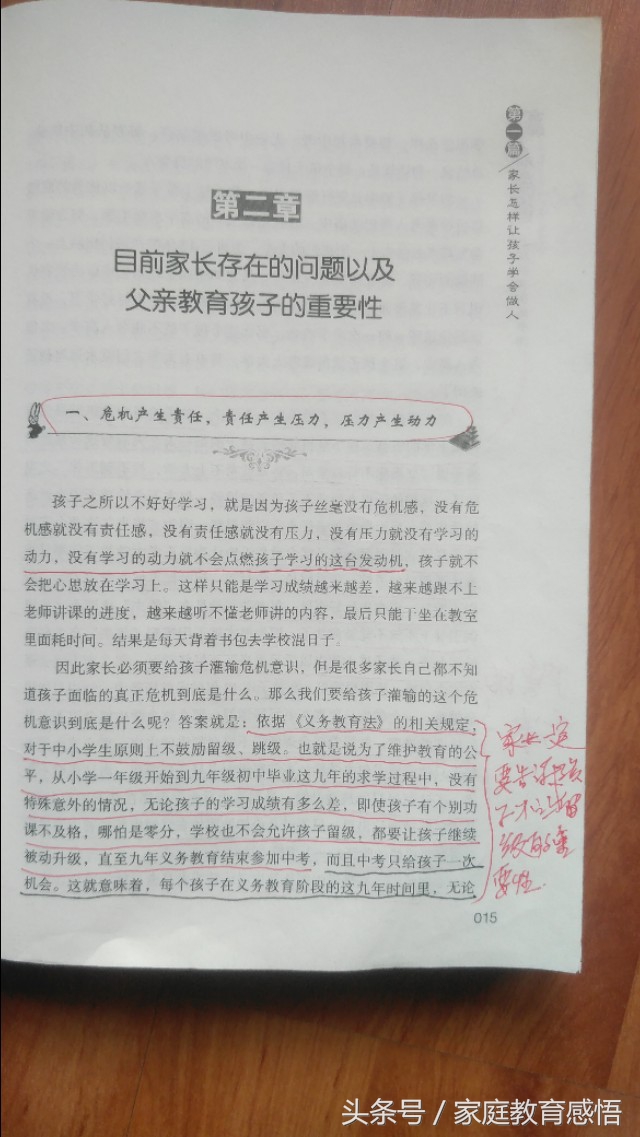 第一篇
家长怎样让孩子学会做人
第二章
目前家长存在的问题以及
父亲教育孩子的重要性
一、危机产生责任，责任产生压力，压力产生动力
孩子之所以不好好学习，就是因为孩子丝毫没有危机感，没有危
机感就没有责任感，没有责任感就没有压力，没有压力就没有学习的
动力，没有学习的动力就不会点燃孩子学习的这台发动机，孩子就不
会把心思放在学习上。这样只能是学习成绩越来越差，越来越跟不上
老师讲课的进度，越来越听不懂老师讲的内容，最后只能干坐在教室
里面耗时间。结果是每天背着书包去学校混日子。
因此家长必须要给孩子灌输危机意识，但是很多家长自己都不知
道孩子面临的真正危机到底是什么。那么我们要给孩子灌输的这个危
机意识到底是什么呢？答案就是：依据《义务教育法》的相关规定，
对于中小学生原则上不鼓励留级、跳级。也就是说为了维护教育的公
平，从小学一年级开始到九年级初中毕业这九年的求学过程中，没有
特殊意外的情况，无论孩子的学习成绩有多么差，即使孩子有个别功
课不及格，哪怕是零分，学校也不会允许孩子留级，都要让孩子继续
被动升级，直至九年义务教育结束参加中考，而且中考只给孩子一次
机会。这就意味着，每个孩子在义务教育阶段的这九年时间里，无论
家长一定
要告诉孩
留
级的重
要性.
015
头条号／家庭教育感悟